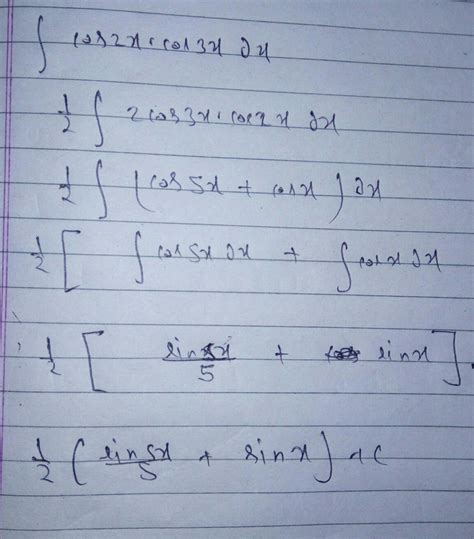 ∫ cos2x·cos3x dx
1/2 ∫ 2cos3x·cos2x dx
1/2 ∫ (cos5x + cosx) dx
1/2 [ ∫ cos5x dx + ∫ cosx dx
1/2 [ sin5x/5 + sinx ].
1/2 ( sin5x/5 + sinx ] + C